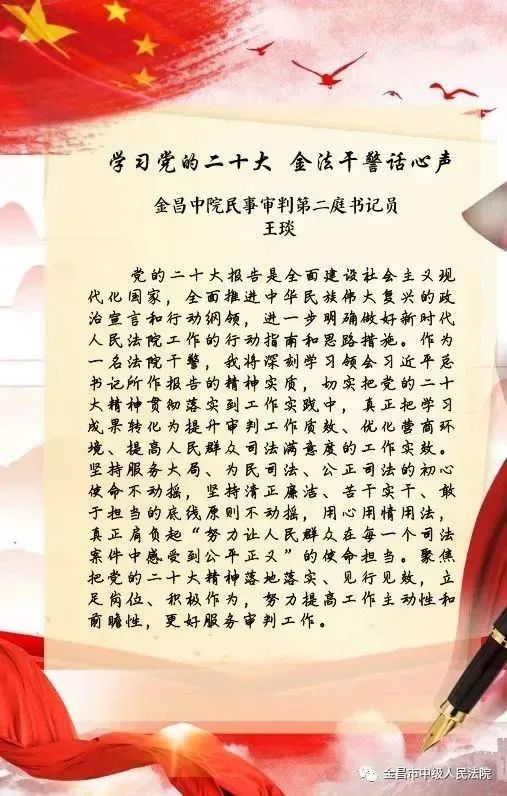 学习党的二十大 金法干警话心声
金昌中院民事审判第二庭书记员
王琰
党的二十大报告是全面建设社会主义现
代化国家，全面推进中华民族伟大复兴的政
治宣言和行动纲领，进一步明确做好新时代
人民法院工作的行动指南和思路措施。作为
一名法院干警，我将深刻学习领会习近平总
书记所作报告的精神实质，切实把党的二十
大精神贯彻落实到工作实践中，真正把学习
成果转化为提升审判工作质效、优化营商环
境、提高人民群众司法满意度的工作实效。
坚持服务大局、为民司法、公正司法的初心
使命不动摇，坚持清正廉洁、苦干实干、敢
于担当的底线原则不动摇，用心用情用法，
真正肩负起“努力让人民群众在每一个司法
案件中感受到公平正义”的使命担当。聚焦
把党的二十大精神落地落实、见行见效，立
足岗位、积极作为，努力提高工作主动性和
前瞻性，更好服务审判工作。
金昌市中级人民法院